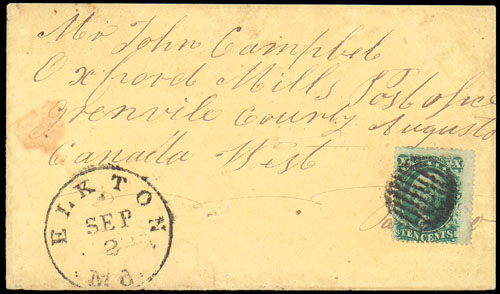 Mr John Campbel
Oxford Mills Post office
Grenvile County Augusta
Canada West
ELKTON
SEP
2
Md
X X
TEN CENTS